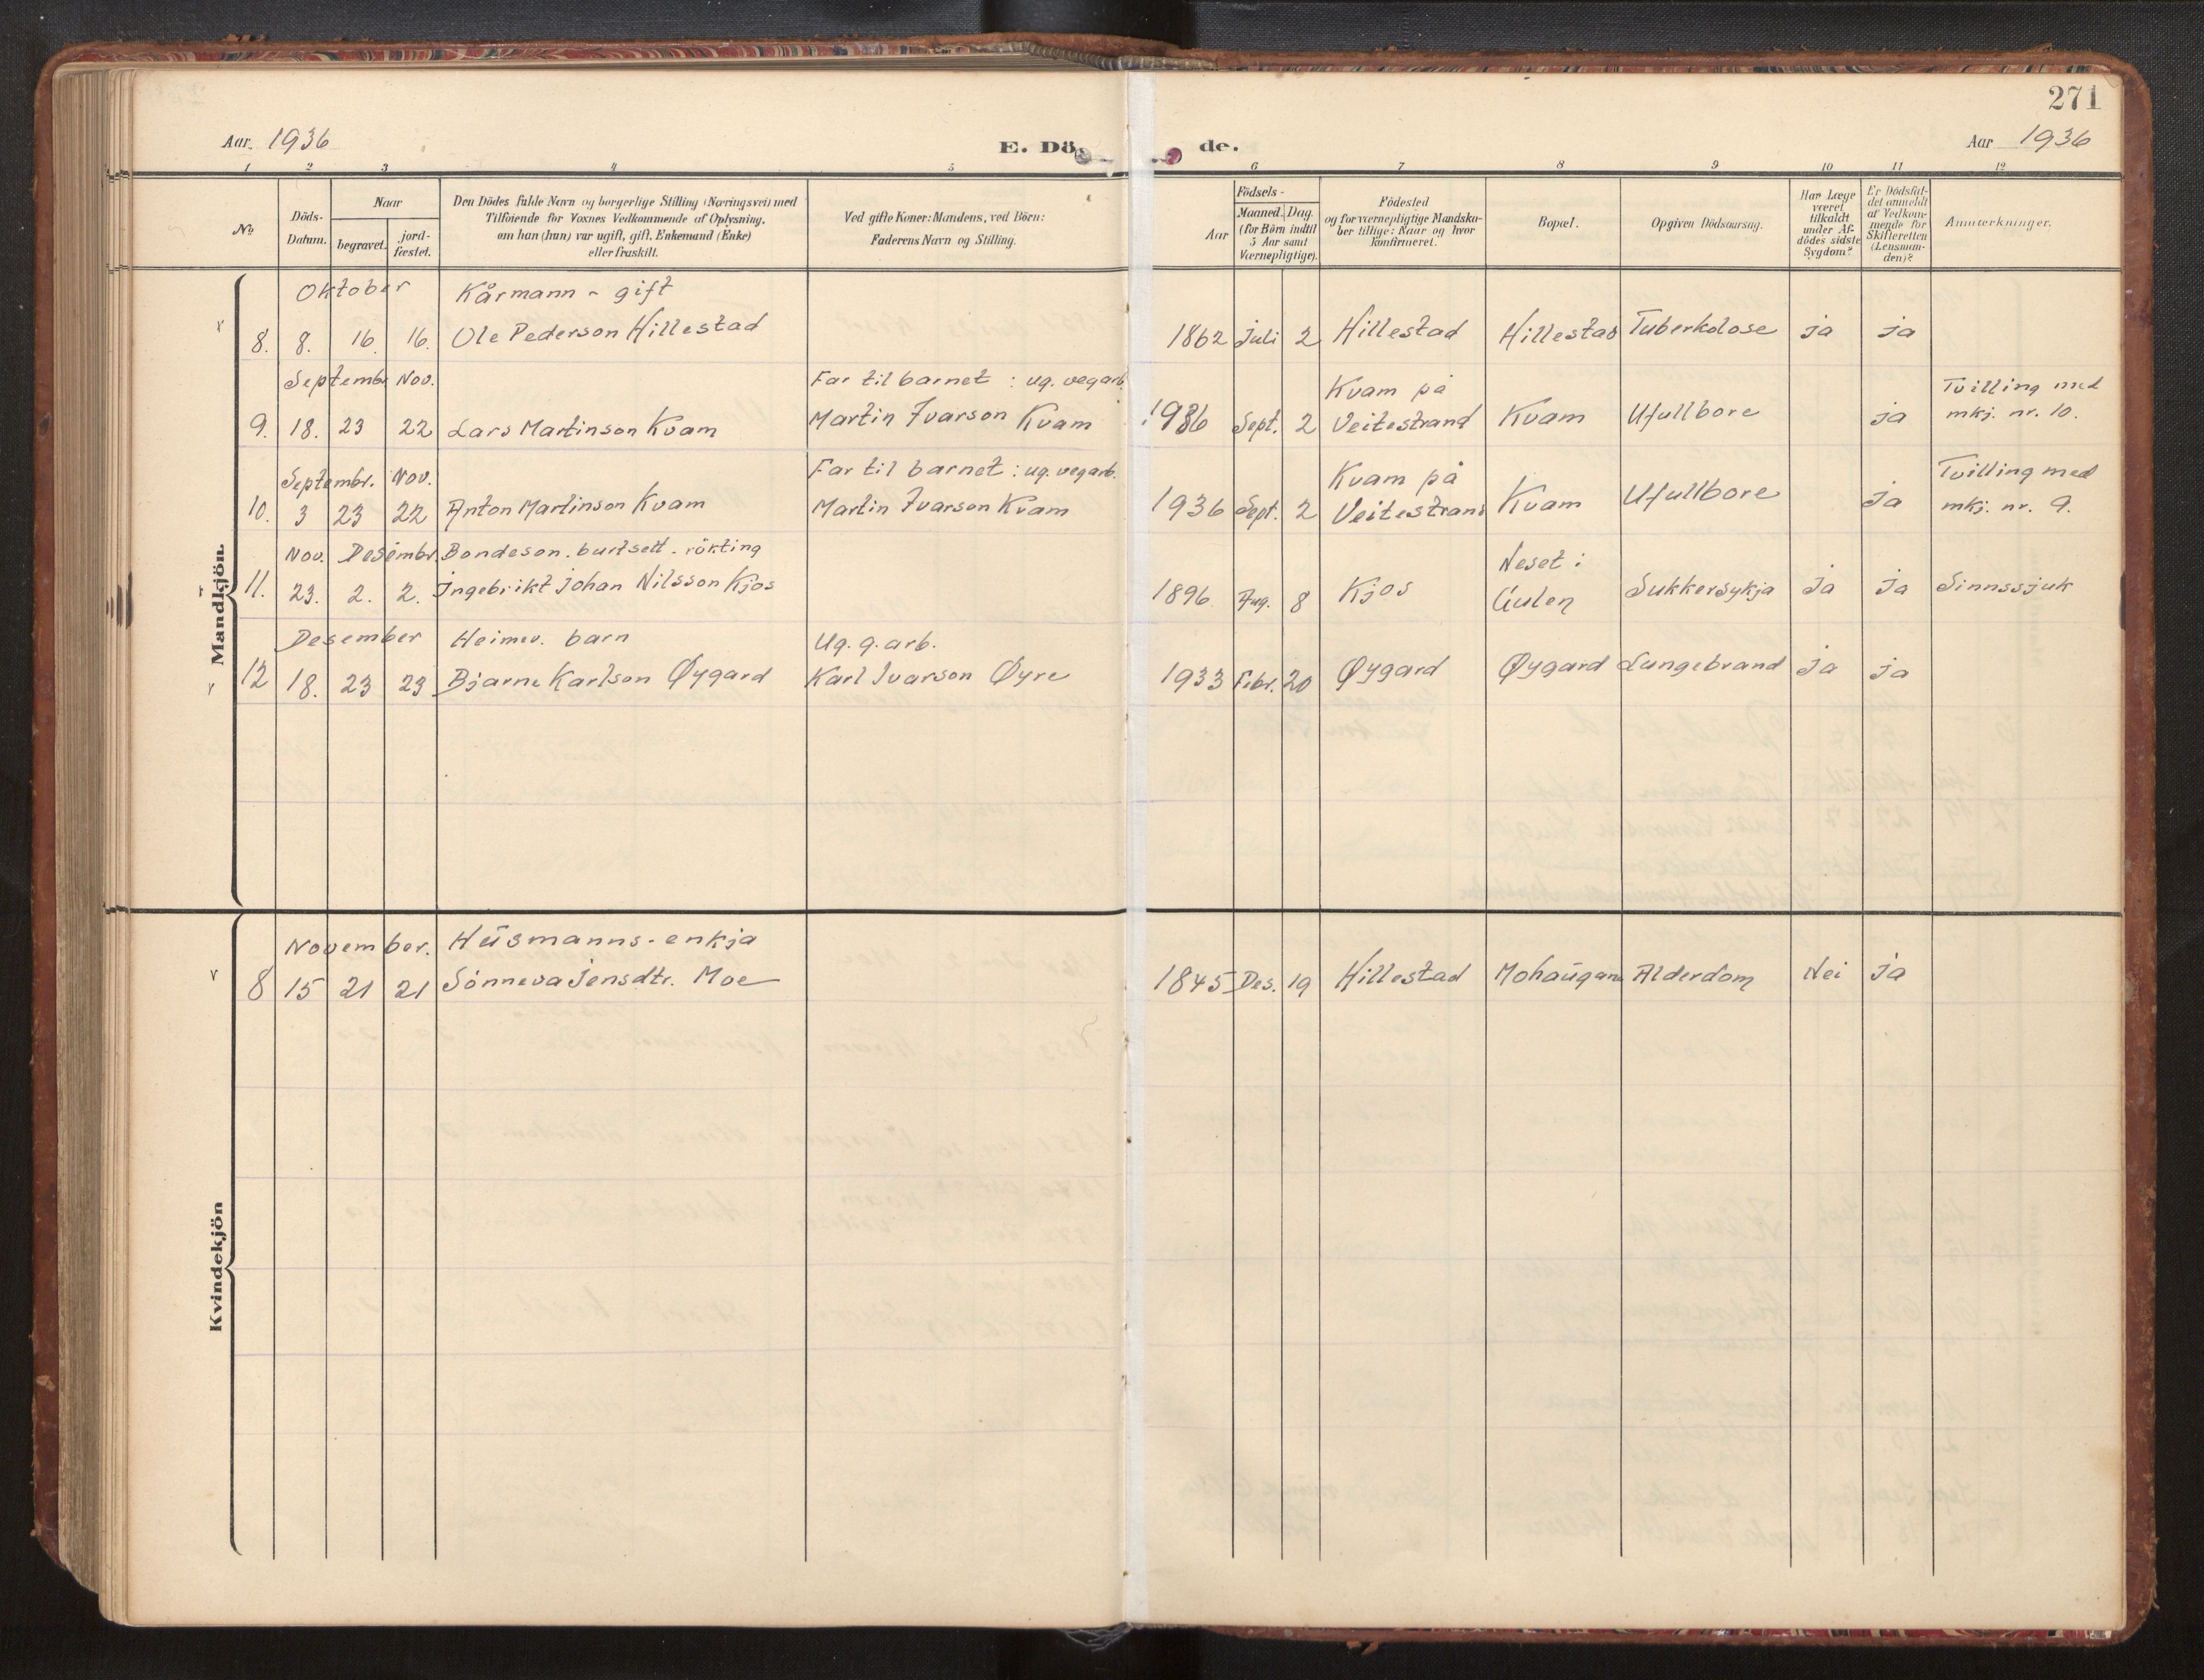 271
Aar 1936
E. Dö
de.
Aar 1936
1 2 3 4 5 6 7 8 9 10 11 12
No
Döds-Datum.
Naar
begravet.
jord-fæstet.
Den Dödes fulde Navn og borgerlige Stilling (Næringsvei) med
Tilföiende for Voxnes Vedkommende af Oplysning,
om han (hun) var ugift, gift, Enkemand (Enke)
eller fraskilt.
Ved gifte Koner: Mandens, ved Börn:
Faderens Navn og Stilling.
Födsels-
Aar
Maaned. Dag.
(for Börn indtil
5 Aar samt
Værnepligtige).
Födested
og for værnepligtige Mandska-
ber tillige: Naar og hvor
konfirmeret.
Bopæl.
Opgiven Dödsaarsag.
Har Læge
været
tilkaldt
under Af-
dödes sidste
Sygdom?
Er Dödsfal-
det anmeldt
af Vedkom-
mende for
Skifteretten
(Lensman-
den)?
Anmærkninger.
Mandkjön.
Oktober Kårmann - gift
8. 8. 16. 16. Ole Pederson Hillestad 1862 Juli 2 Hillestad Hillestad Tuberkolose ja ja
Septembr Nov. Far til barnet : ug. vegarb. Kvam på Tvilling med
9. 18. 23 22 Lars Martinson Kvam Martin Ivarson Kvam 1936 Sept. 2 Veitestrand Kvam Ufullbore ja mkj. nr. 10.
Septembr. Nov. Far til barnet : ug. vegarb. Kvam på Tvilling med
10. 3 23 22 Anton Martinson Kvam Martin Ivarson Kvam 1936 Sept. 2 Veitestrand Kvam Ufullbore ja mkj. nr. 9.
Nov. Desembr. Bondeson. burtsett. rökting Neset i
11. 23. 2. 2. Ingebrikt Johan Nilsson Kjos 1896 Aug. 8 Kjos Gulen Sukkersykja ja ja Sinnssjuk
Desember Heimev. barn Ug. g.arb.
12 18. 23 23 Bjarne Karlson Øygard Karl Ivarson Øyre 1933 Febr. 20 Øygard Øygard Lungebrand ja ja
Kvindekjön
November. Husmanns-enkja
8 15 21 21 Sönneva Jensdtr. Moe 1845 Des. 19 Hillestad Mohaugane Alderdom Nei ja